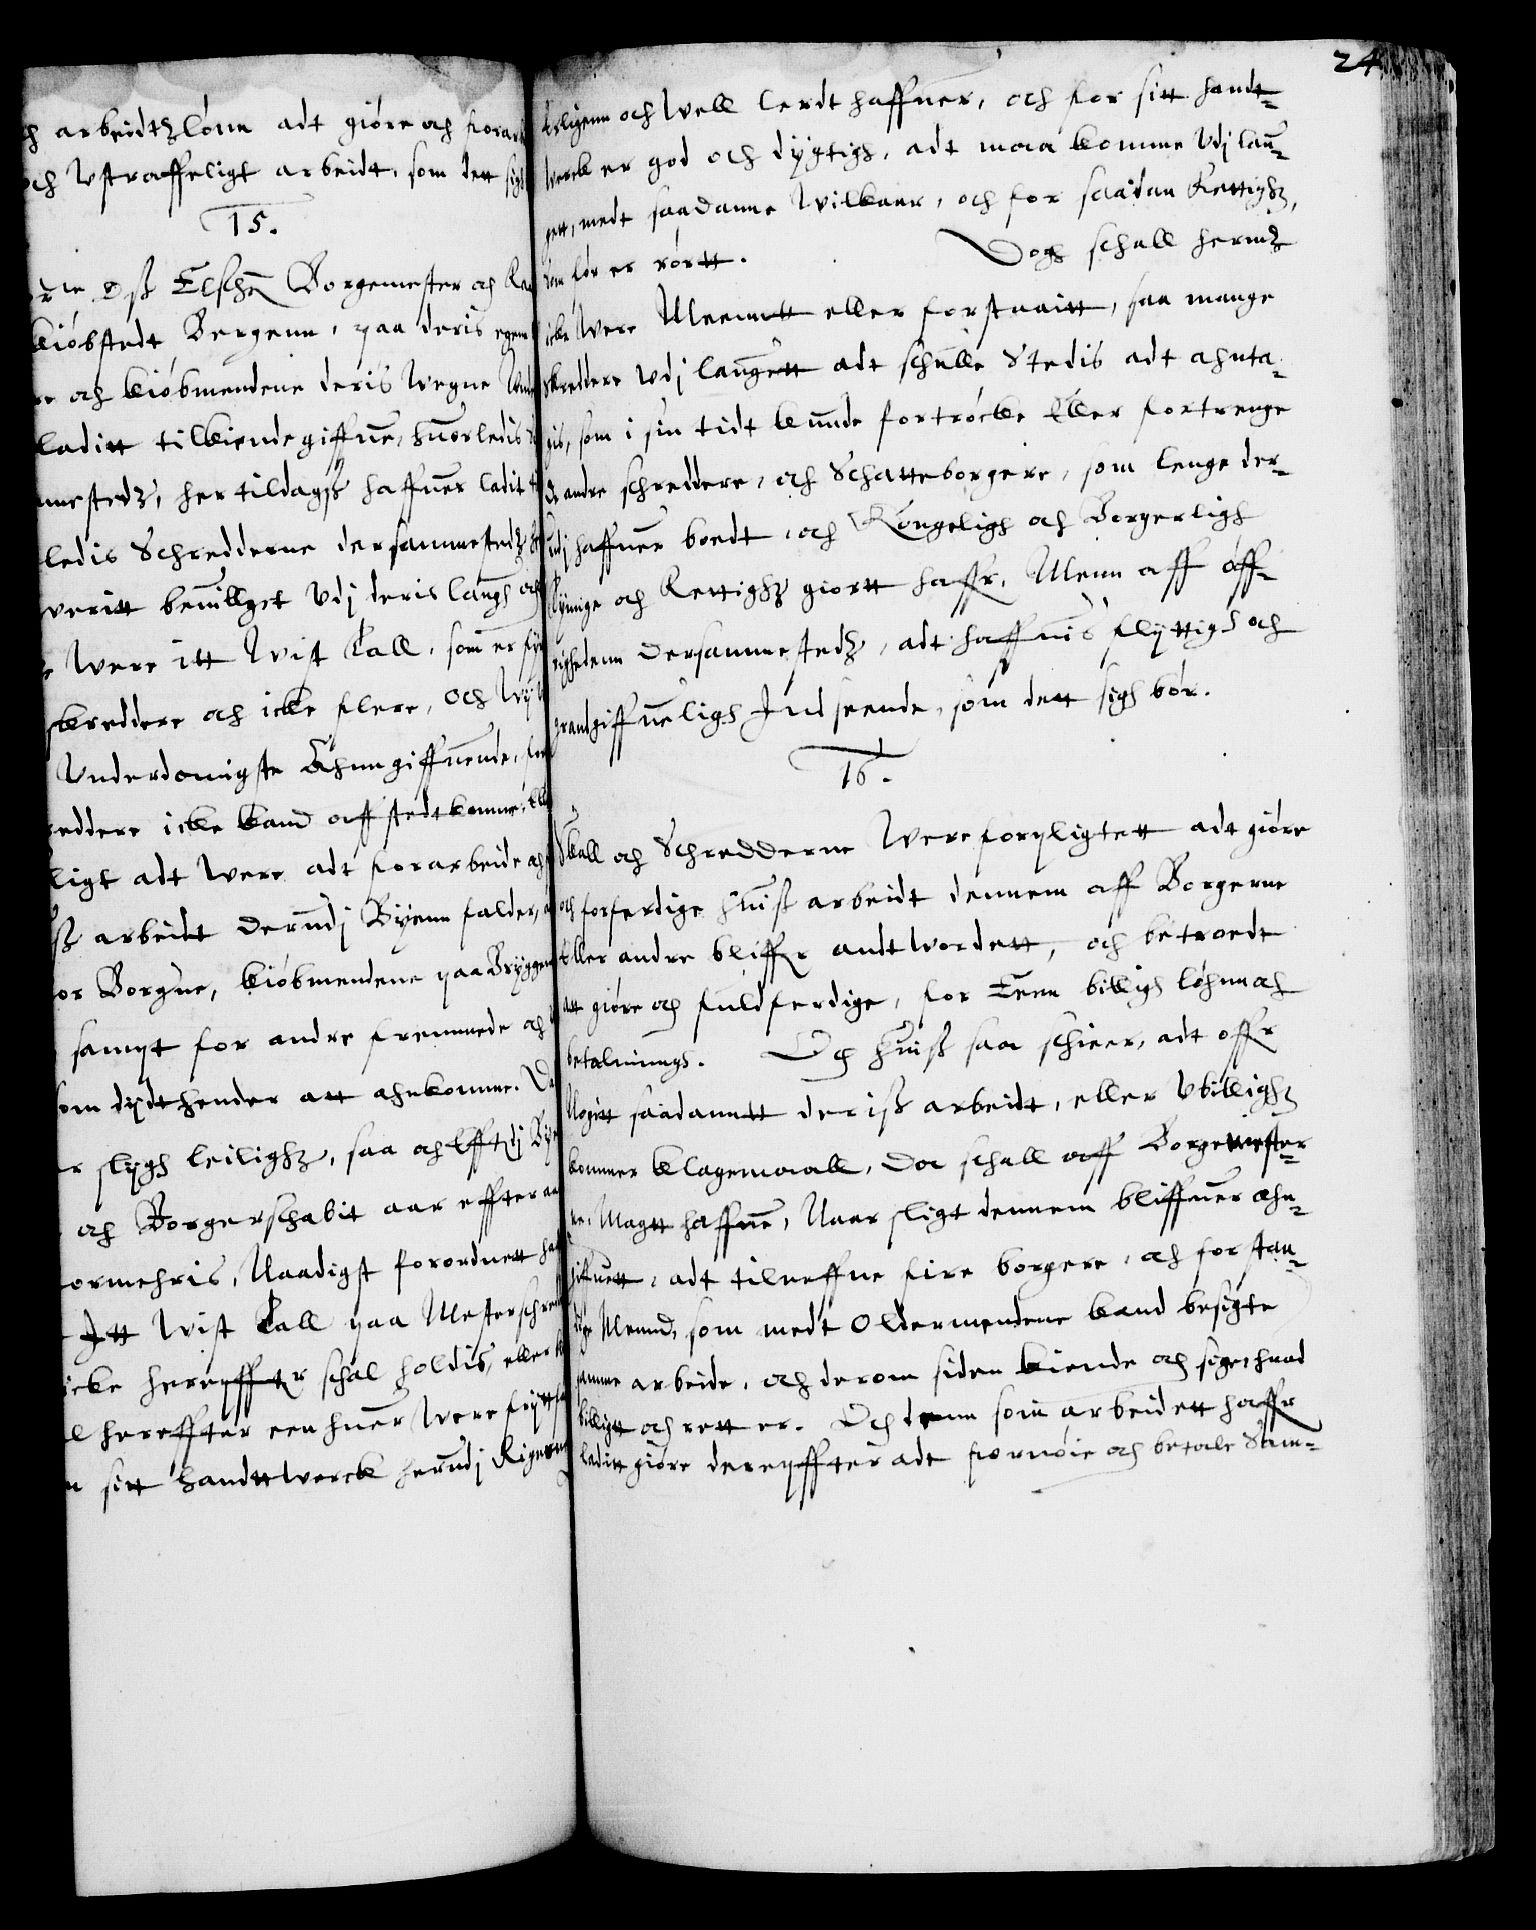 arbeidtzlönn adt giöre och forar
och Ustraffeligt arbeidt, som dett sigh
15.
Oss Elschē Borgemester och Raa
kiöbstedt Bergenn, paa deris egenn
och kiöbmendene deris Wegne Und
laditt tilkiende giffue, huorledis
mestedz, her tildags haffuer ladit
ledis Schredderne dersammestedz
veritt beuillget Udj deris laugh och
Were itt Wist tall, som er
skreddere och icke flere, och
Underdanigste Ahnngiffuende, for
reddere icke kand aff sted komme,
ligt adt Were adt forarbeide
arbeidt Derudj Byenn falder,
for Borgne, kiöbmendene paa Bryggenn
sampt for andre fremmede och
som dydt hender att ahnkomme.
slygh leilighz, saa och
och Borgerschabit aar effter
formehris, Naadigst forordnett
Itt Wist tall paa Mesterschred
icke hereffter schal holdis, eller
hereffter een huer Were frytt
sitt Handttwerck herudj Riget
24
erligenn och Well lerdt haffuer, och for sitt handt-
werck er god och dygtigh, adt maa komme Udj lau-
gett, medt saadanne Wilkaar, och for saadan Rettighz,
som för er rörtt. Dogh schall hermz
icke Were Meenntt eller forstaaitt, saa mange
Skreddere Udj laugett adt schulle Stedis adt ahnta-
gis, som i sin tidt kunde fortröcke Eller fortrenge
De andre schreddere, och Schatteborgere, som lenge der-
udj haffuer boedt, och Kongeligh och Borgerligh
Tynnge och Rettighz giortt haffr. Menn aff öff-
righedenn Dersammestedz, adt haffuis flyttigh och
grandgiffueligh Indseende, som dett sigh bör.
16.
Skall och Schredderne Were forpligtett adt giöre
och forferdige huiss arbeidt dennem aff Borgerne
Eller andre bliffr andtwordett, och betroedt
att giöre och fuldferdige, for Een billigh löhnn och
betalninngh. Och huiss saa schier, adt offr
Nogitt saadanntt deriss arbeidt, eller Ubillighz
kommer klagemaall, Da schall aff Borgemester-
ne, Magtt haffue, Naar sligt dennem bliffuer ahn-
giffuett, adt tilneffne fire borgere, och forstan-
dige Mennd, som medt Oldermendene kand besigte
samme arbeide, och derom siden kiende och sige, huad
billigtt och rett er. Och denn som arbeidett haffr
laditt giöre dereffter adt fornöie och betale Sam-